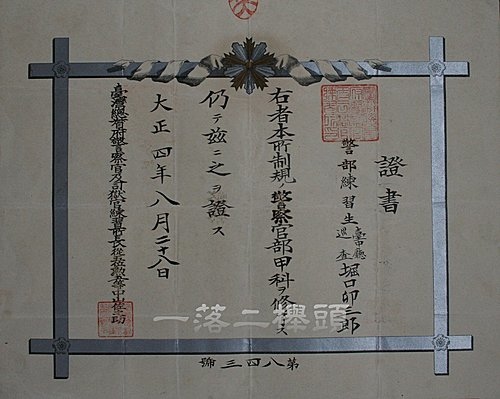 證書
警部練習生 臺中廳巡査 堀口卯三郎
右者本所制規ノ警察官部甲科ヲ修了ス
仍テ茲ニ之ヲ證ス
大正四年八月二十八日
臺灣總督府警察官及司獄官練習所長從五位勳五等中山佐之助
第八四三號
一落二櫸頭